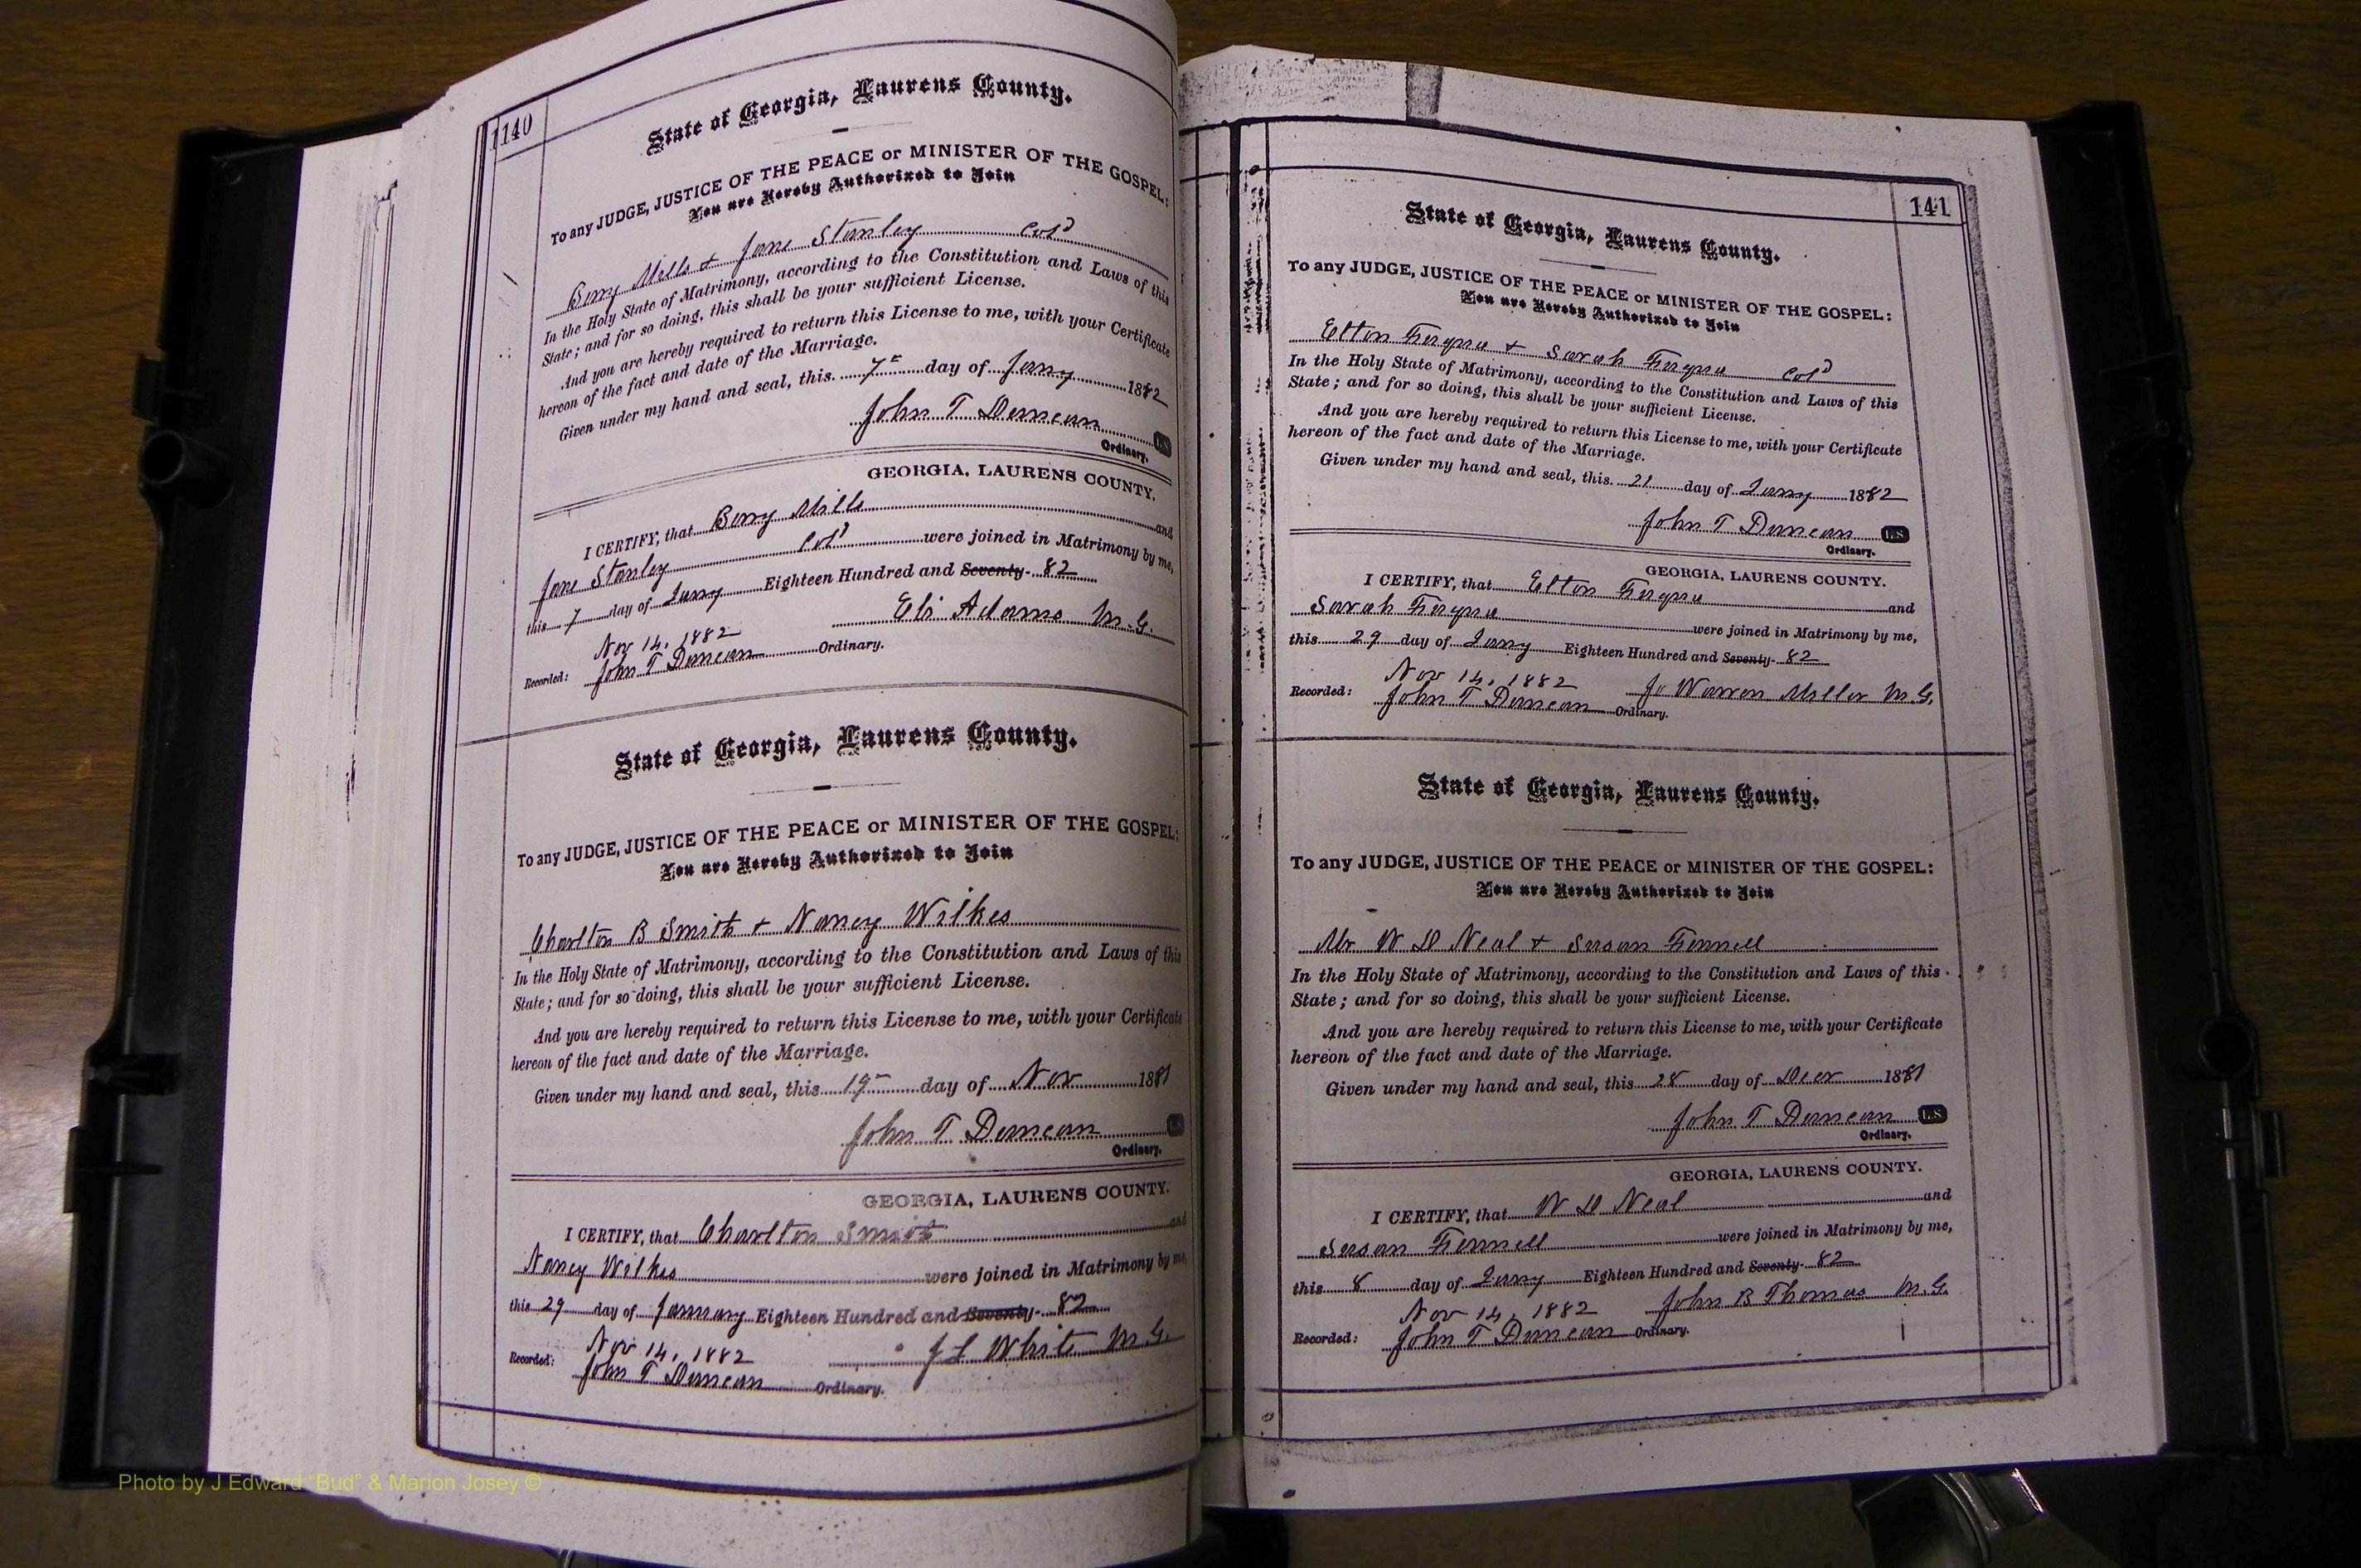 140
State of Georgia, Laurens County.
To any JUDGE, JUSTICE OF THE PEACE or MINISTER OF THE GOSPEL:
You are Hereby Authorized to Join
Berry Mills & Jane Stanley Cold
In the Holy State of Matrimony, according to the Constitution and Laws of this
State; and for so doing, this shall be your sufficient License.
And you are hereby required to return this License to me, with your Certificate
hereon of the fact and date of the Marriage.
Given under my hand and seal, this 7th day of Jany 1882
John T Duncan L.S.
Ordinary.
GEORGIA, LAURENS COUNTY.
I CERTIFY, that Berry Mills and
Jane Stanley Cold were joined in Matrimony by me,
this 7 day of Jany Eighteen Hundred and Seventy- 82
Eli Adams M.G.
Nov 14, 1882
Recorded: John T Duncan Ordinary.
State of Georgia, Laurens County.
To any JUDGE, JUSTICE OF THE PEACE or MINISTER OF THE GOSPEL:
You are Hereby Authorized to Join
Charlton B Smith & Nancy Wilkes
In the Holy State of Matrimony, according to the Constitution and Laws of this
State; and for so doing, this shall be your sufficient License.
And you are hereby required to return this License to me, with your Certificate
hereon of the fact and date of the Marriage.
Given under my hand and seal, this 19th day of Nov 1881
John T Duncan L.S.
Ordinary.
GEORGIA, LAURENS COUNTY.
I CERTIFY, that Charlton Smith and
Nancy Wilkes were joined in Matrimony by me,
this 29 day of January Eighteen Hundred and Seventy- 82
J L White M.G.
Nov 14, 1882
Recorded: John T Duncan Ordinary.
141
State of Georgia, Laurens County.
To any JUDGE, JUSTICE OF THE PEACE or MINISTER OF THE GOSPEL:
You are Hereby Authorized to Join
Elton & Sarah Cold
In the Holy State of Matrimony, according to the Constitution and Laws of this
State; and for so doing, this shall be your sufficient License.
And you are hereby required to return this License to me, with your Certificate
hereon of the fact and date of the Marriage.
Given under my hand and seal, this 21 day of Jany 1882
John T Duncan L.S.
Ordinary.
GEORGIA, LAURENS COUNTY.
I CERTIFY, that Elton and
Sarah were joined in Matrimony by me,
this 29 day of Jany Eighteen Hundred and Seventy- 82
Nov 14, 1882 Warren Miller M.G.
Recorded: John T Duncan Ordinary.
State of Georgia, Laurens County.
To any JUDGE, JUSTICE OF THE PEACE or MINISTER OF THE GOSPEL:
You are Hereby Authorized to Join
Mr W D Neal & Susan Fennell
In the Holy State of Matrimony, according to the Constitution and Laws of this
State; and for so doing, this shall be your sufficient License.
And you are hereby required to return this License to me, with your Certificate
hereon of the fact and date of the Marriage.
Given under my hand and seal, this 28 day of Decr 1881
John T Duncan L.S.
Ordinary.
GEORGIA, LAURENS COUNTY.
I CERTIFY, that W D Neal and
Susan Fennell were joined in Matrimony by me,
this 8 day of Jany Eighteen Hundred and Seventy- 82
Nov 14, 1882 John B Thomas M.G.
Recorded: John T Duncan Ordinary.
Photo by J Edward "Bud" & Marion Josey ©